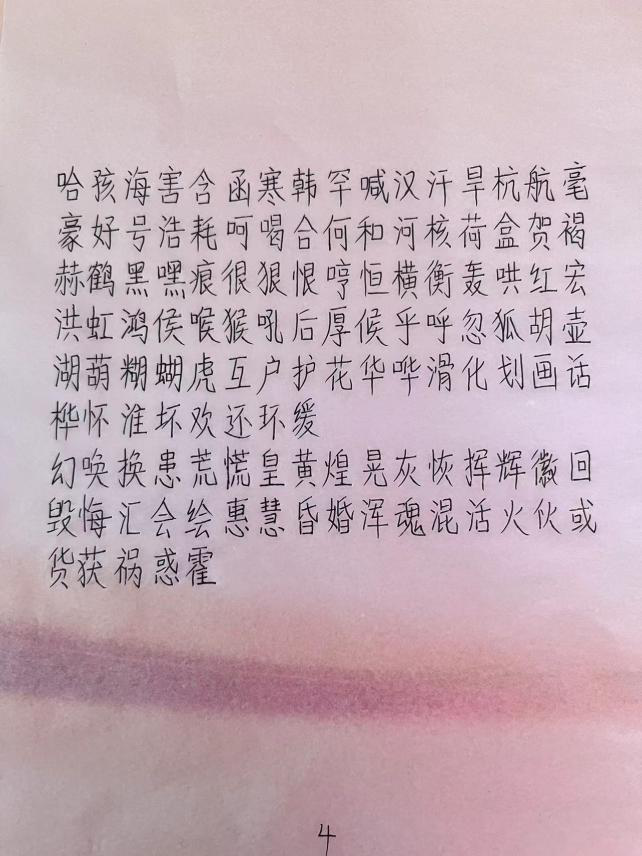 哈孩海害含函寒韩罕喊汉汗旱杭航毫
豪好号浩耗呵喝合何和河核荷盒贺褐
赫鹤黑嘿痕很狠恨哼恒横衡轰哄红宏
洪虹鸿侯喉猴吼后厚候乎呼忽狐胡壶
湖葫糊蝴虎互户护花华哗滑化划画话
桦怀淮坏欢还环缓
幻唤换患荒慌皇黄煌晃灰恢挥辉徽回
毁悔汇会绘惠慧昏婚浑魂混活火伙或
货获祸惑霍
4